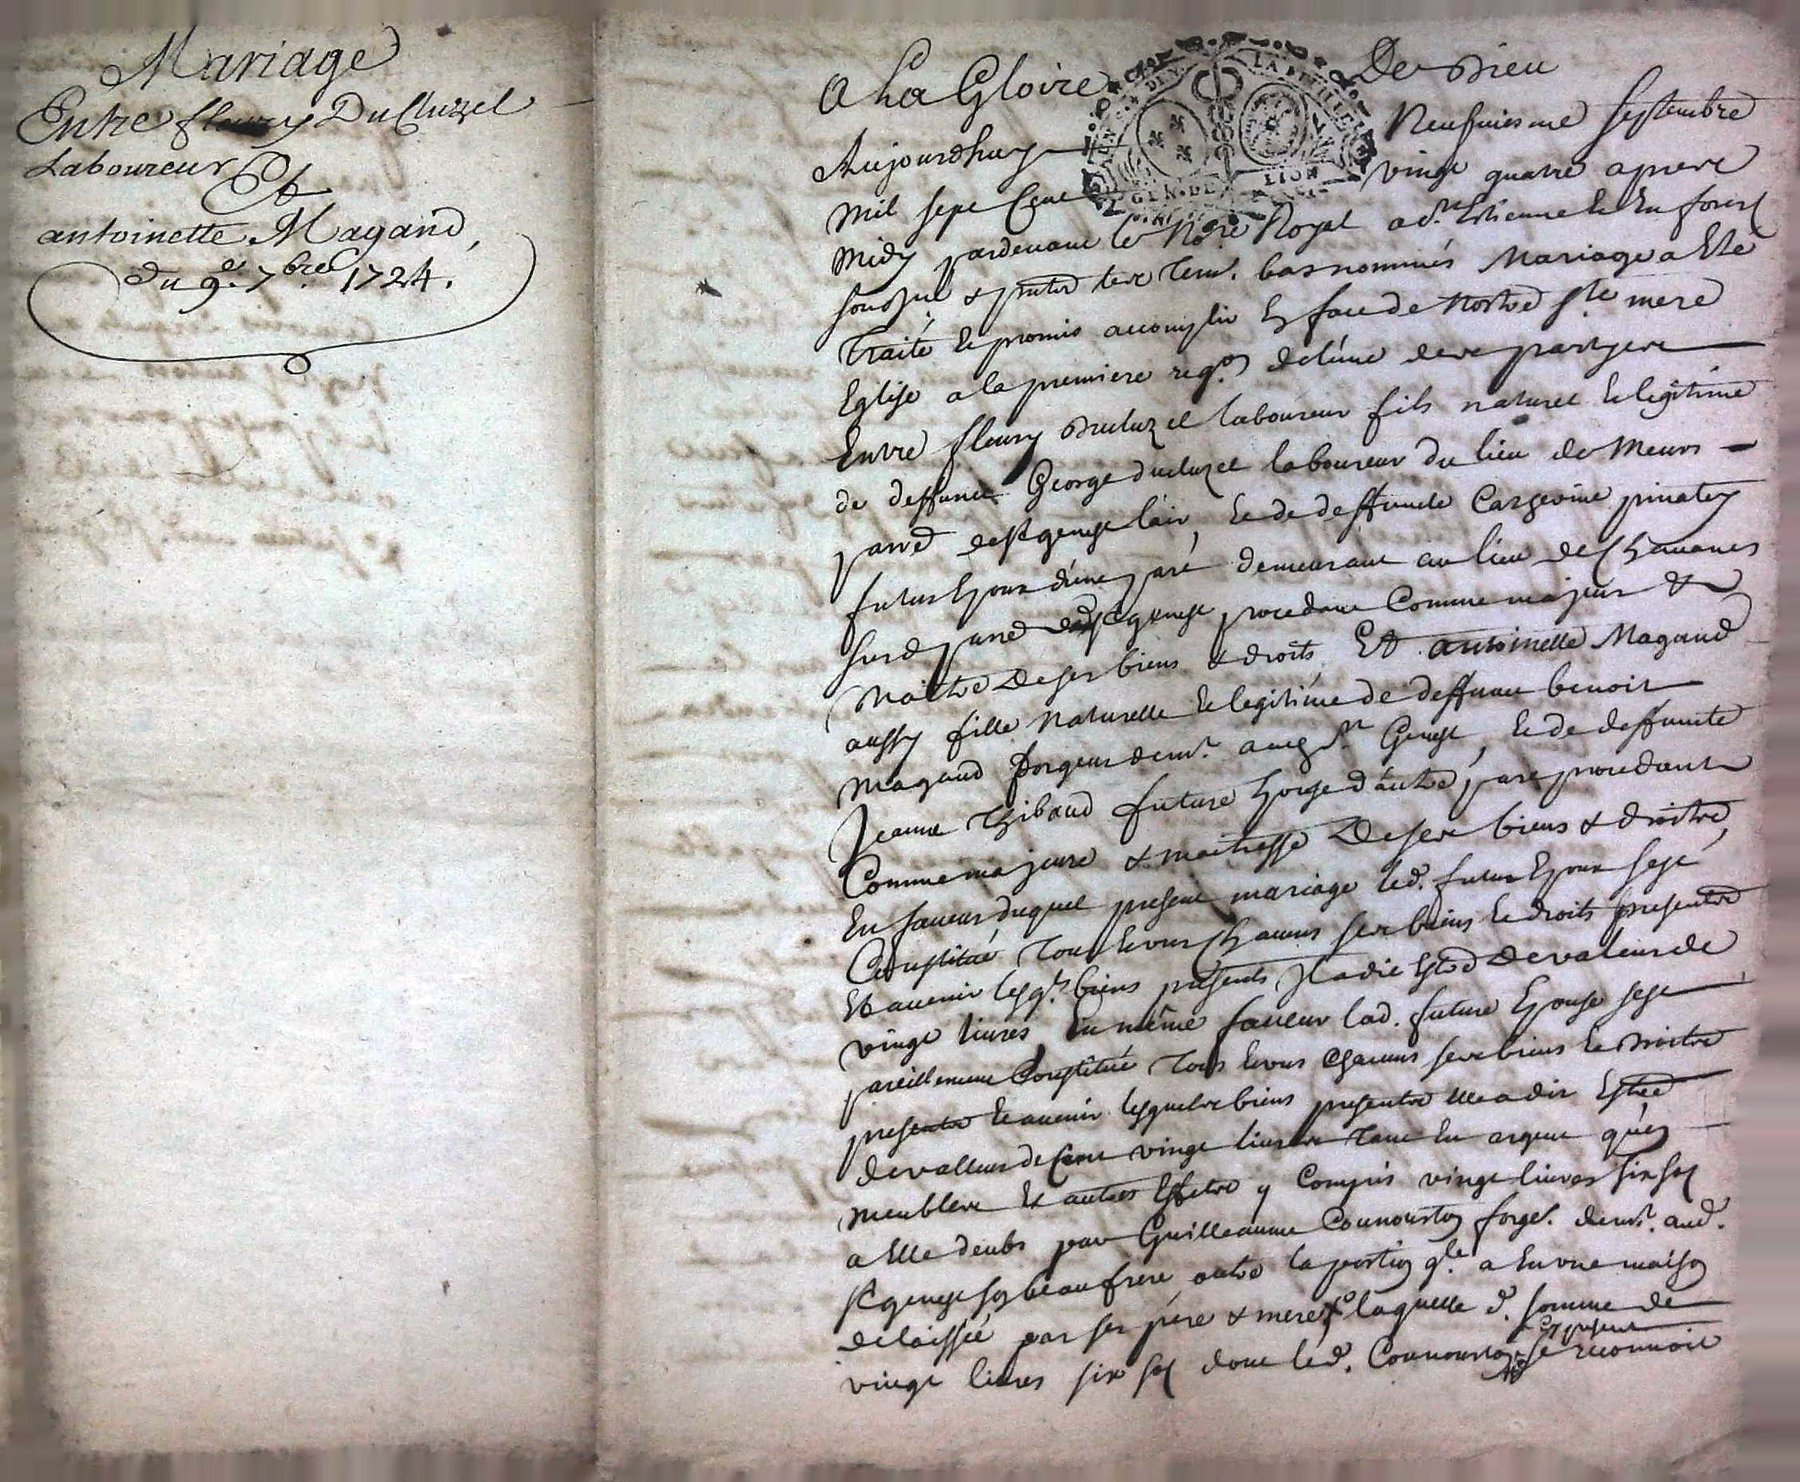 Mariage
Entre fleury DuCluzel
Laboureur
Et
antoinette Magand,
du 9e. 7bre 1724.
A La Gloire De Dieu
Aujourdhuy Neufviesme Septembre
Mil sept Cent vingt quatre apres
Midy pardevant le Nore Royal a St Estienne en forest
soussné & present les tem. bas nommés Mariage a Esté
Traité et promis accomplir En face de Nostre Ste mere
Eglise a la premiere reqon de lune des parties
Entre fleury Ducluzel laboureur fils naturel et legitime
de deffunct George ducluzel laboureur du lieu de Meons
parr. de St genest lair, et de deffuncte pinatey
futur Epoux d'une part demeurant au lieu des
surd parr de St genest procedant Comme majeur &
Maitre De ses biens & droits Et antoinette Magand
aussy fille Naturelle et legitime de deffunct benoit
Magand forgeur demt. aud St Genest, et de deffuncte
Jeanne Thibaud future Epouse d'autre part procedant
Comme majeure & maitresse De ses biens & droitts,
En faveur duquel present mariage led. futur Epoux sest
Constitué Tous et uns Chacuns ses biens et droits presents
Et avenir lesqls biens presents Il a dit Estre De valeur de
vingt livres, En même faveur lad. future Epouse sest
pareillement Constitué Tous et uns Chacuns ses biens et droitts
presents et avenir lesquels biens presents elle a dit Estre
de valleur de Cent vingt livres Tant En argent qu'en
meubles Et autres Effets y Compris vingt livres six sols
a Elle deubs par Guilleaume forgr. demt. aud.
St genest son beau frere outre la portion qle a En une maison
delaissée par ses pere & mere laquelle d. somme de
vingt livres six sols dont led. cy present se reconnoit